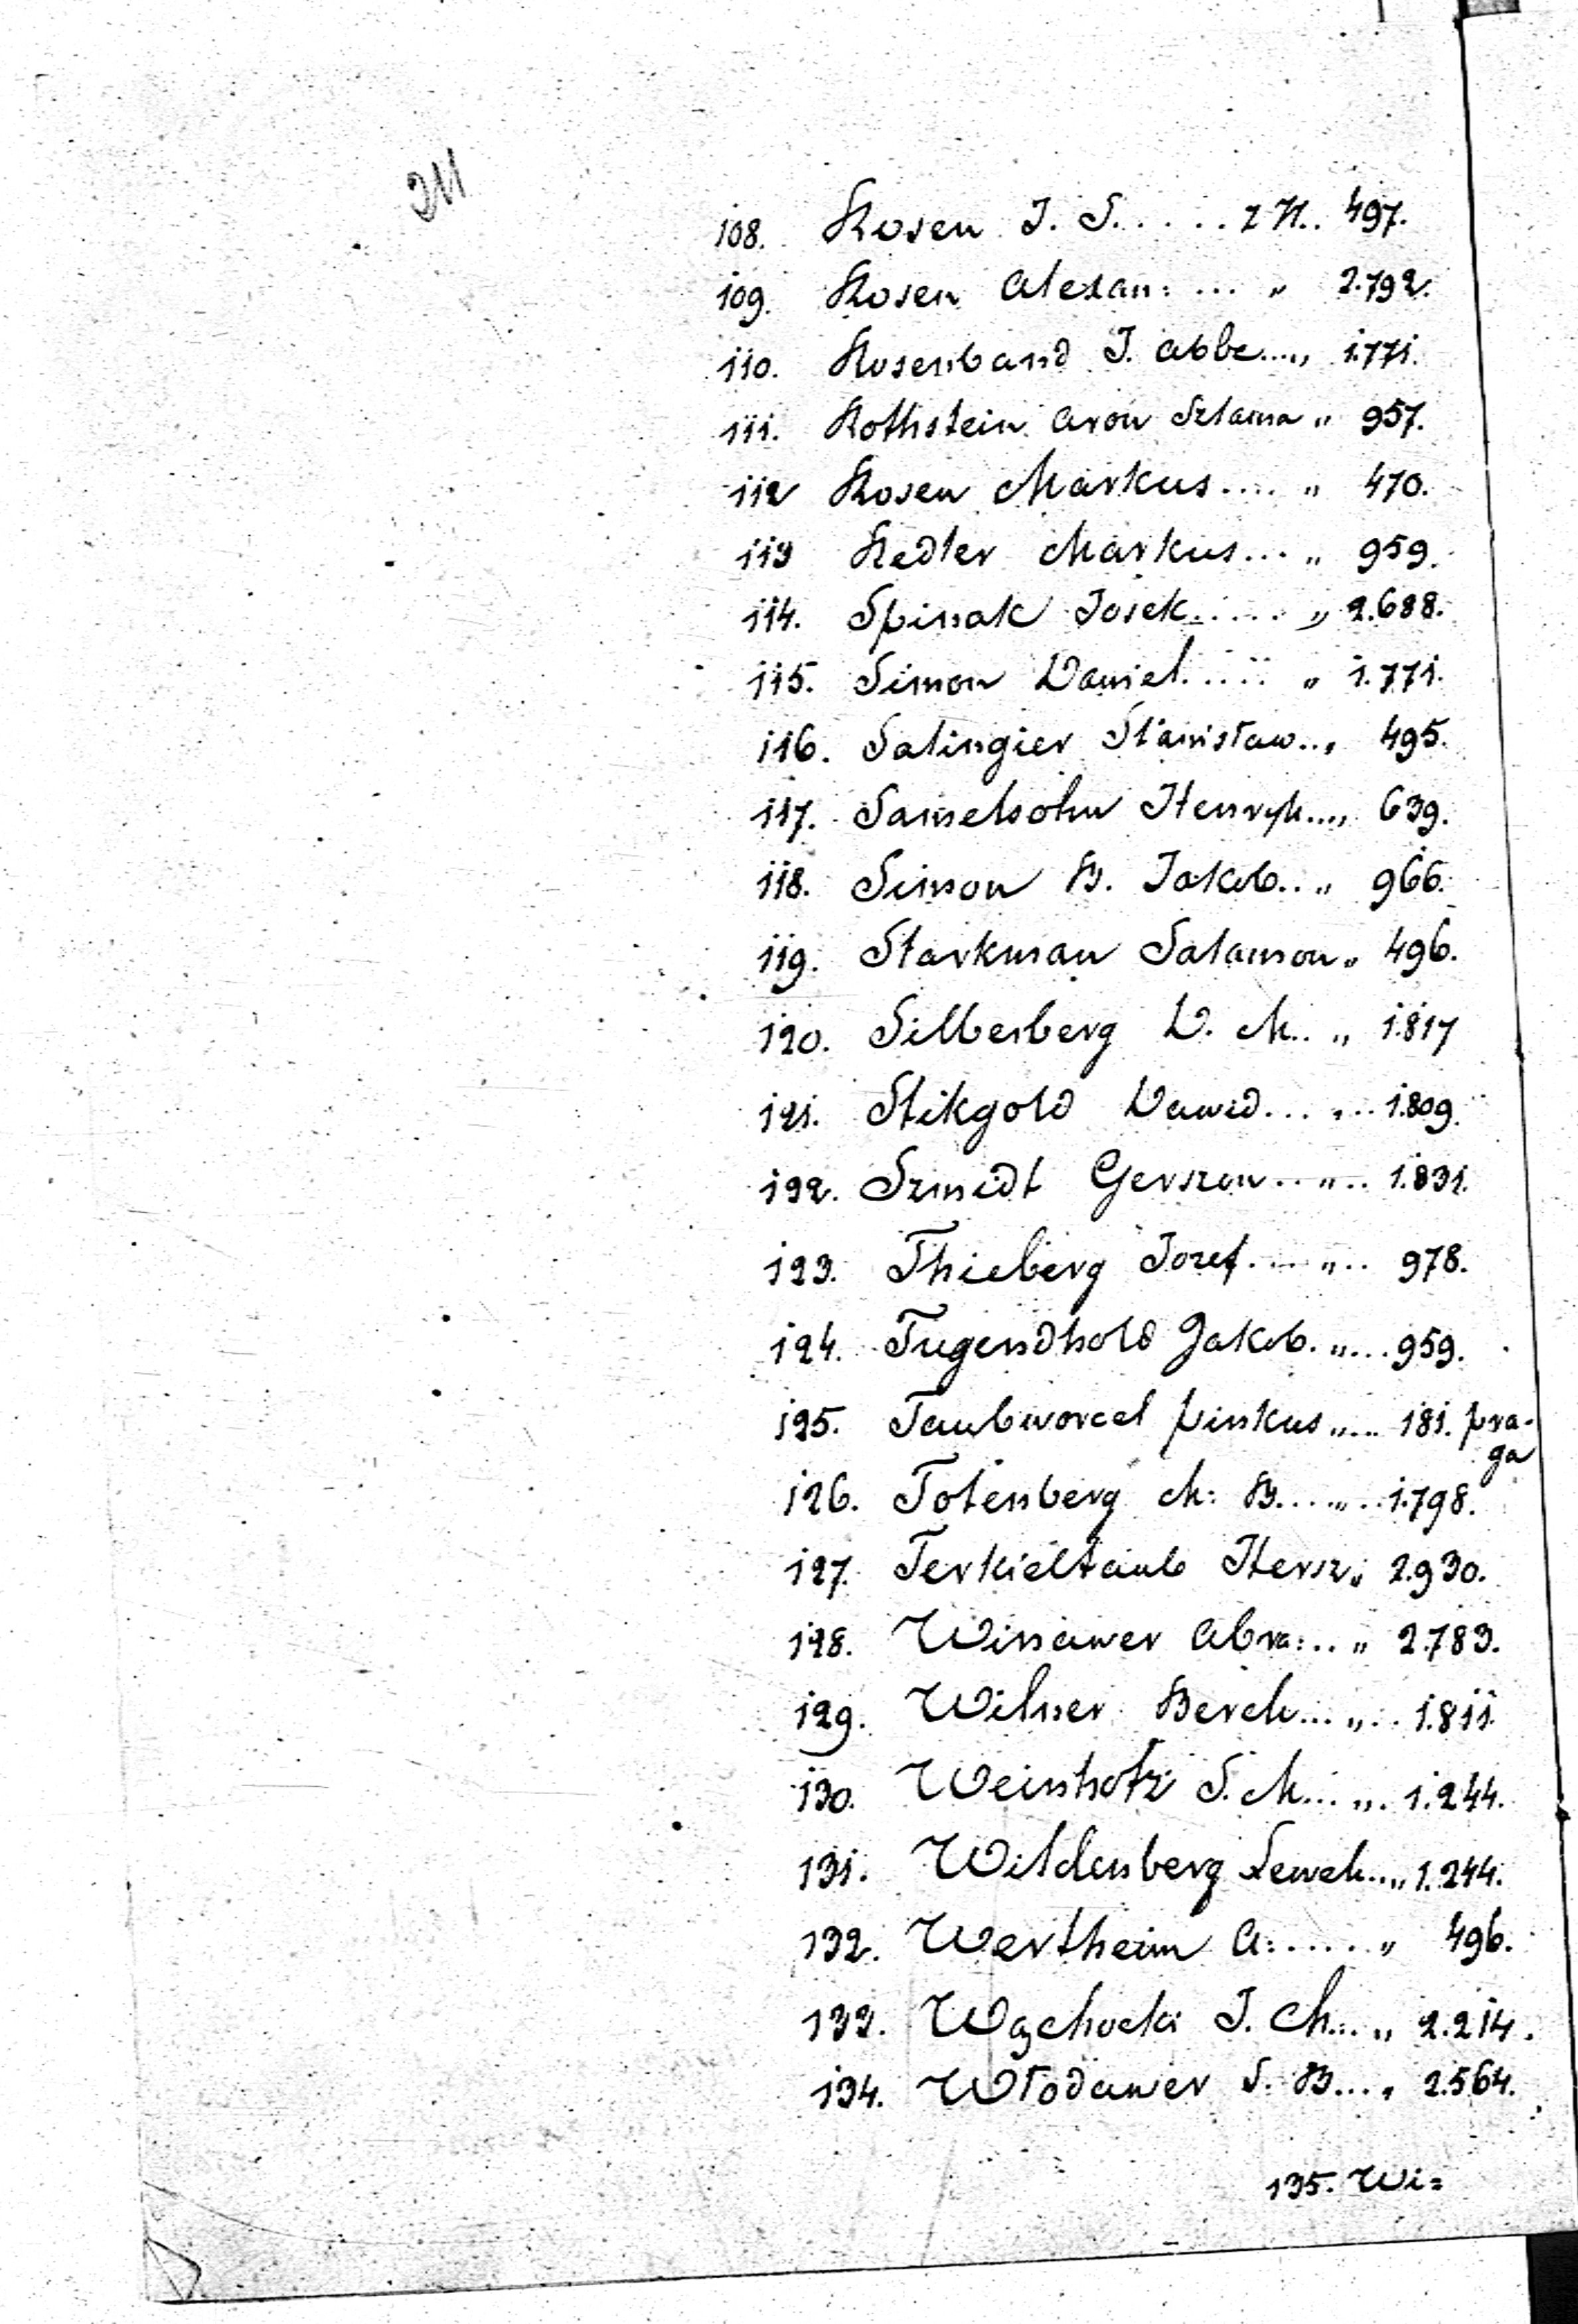 211
108. Rosen J. S. . . . . z N.. 497.
109. Rosen Alexan: ... „ 2.792.
110. Rosenband J. Abbe...„ 1.771.
111. Rothstein Aron Szlama „ 957.
112 Rosen Markus.... „ 470.
113 Redler Markus... „ 959.
114. Spinak Josek..... „ 2.688.
115. Simon Daniel..... „ 1.771.
116. Salingier Stanisław..„ 495.
117. Samelsohn Henryk...„ 639.
118. Simon B. Jakob.. „ 966.
119. Starkman Salamon „ 496.
120. Silberberg D. M.. „ 1.817
121. Stikgold Dawid...„.. 1.809.
122. Szmidt Gerszon..„.. 1.831.
123. Thieberg Jozef....„.. 978.
124. Tugendhold Jakob. „... 959.
125. Taubworcel pinkus „... 181. pra-
ga
126. Totenberg M: B...„.. 1.798.
127. Terkieltaub Hersz „ 2.930.
128. Winawer Abra:.. „ 2.783.
129. Wilner Berek...„.. 1.811.
130. Weinholz S. M...„. 1.244.
131. Wildenberg Lewek..„ 1.244.
132. Wertheim A:..... „ 496.
133. Wąchocki J. Ch... „ 2.214.
134. Włodawer S. B...„ 2.564.
135. Wi=